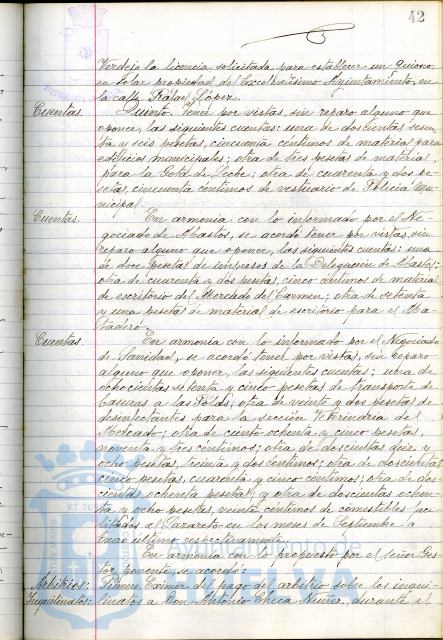 42
Verdejo la licencia solicitada para establecer un quiosco,
en solar propiedad del Excelentísimo Ayuntamiento, en
la calle Rafael López.
Cuentas. Quinto. Tener por vistas, sin reparo alguno que
oponer, las siguientes cuentas: una de doscientas sesen
ta y seis pesetas, cincuenta céntimos de material para
edificios municipales; otra de tres pesetas de material
para la Gota de Leche; otra de cuarenta y dos pe-
setas, cincuenta céntimos de vestuario de Policía Mu-
nicipal.
Cuentas. En armonía con lo informado por el Ne-
gociado de Abastos, se acordó tener por vistas, sin
reparo alguno que oponer, las siguientes cuentas: una
de doce pesetas de impresos de la Delegación de Abastos;
otra de cuarenta y dos pesetas, cinco céntimos de material
de escritorio del Mercado del Carmen; otra de setenta
y una pesetas de material de escritorio para el Ma-
tadero.
Cuentas. En armonía con lo informado por el Negociado
de Sanidad, se acordó tener por vistas, sin reparo
alguno que oponer, las siguientes cuentas; una de
ochocientas setenta y cinco pesetas de transporte de
basuras a las Toldas; otra de veinte y dos pesetas de
desinfectantes para la sección Veterinaria del
Mercado; otra de ciento ochenta y cinco pesetas,
noventa y tres céntimos; otra de doscientas diez y
ocho pesetas, treinta y dos céntimos; otra de doscientas
cinco pesetas, cuarenta y cinco céntimos; otra de dos-
cientas ochenta pesetas; y otra de doscientas ochen-
ta y ocho pesetas, veinte céntimos de comestibles faci-
litados al Lazareto en los meses de Septiembre a
Enero último respectivamente.
En armonía con lo propuesto por el señor Ges-
tor ponente, se acordó:
Arbitrios: Primero. Eximir del pago del arbitrio sobre los inqui-
Inquilinatos: linatos a Don Antonio Checa Núñez, durante el